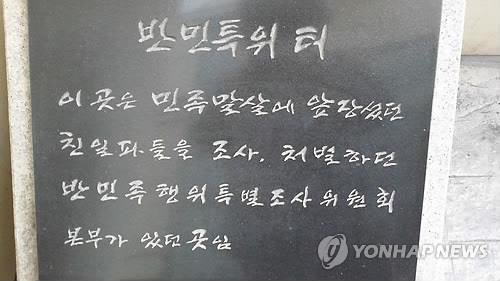 반민특위 터
이 곳은 민족말살에 앞장섰던
친일파들을 조사, 처벌하던
반민족행위특별조사위원회
본부가 있던 곳임
YONHAPNEWS